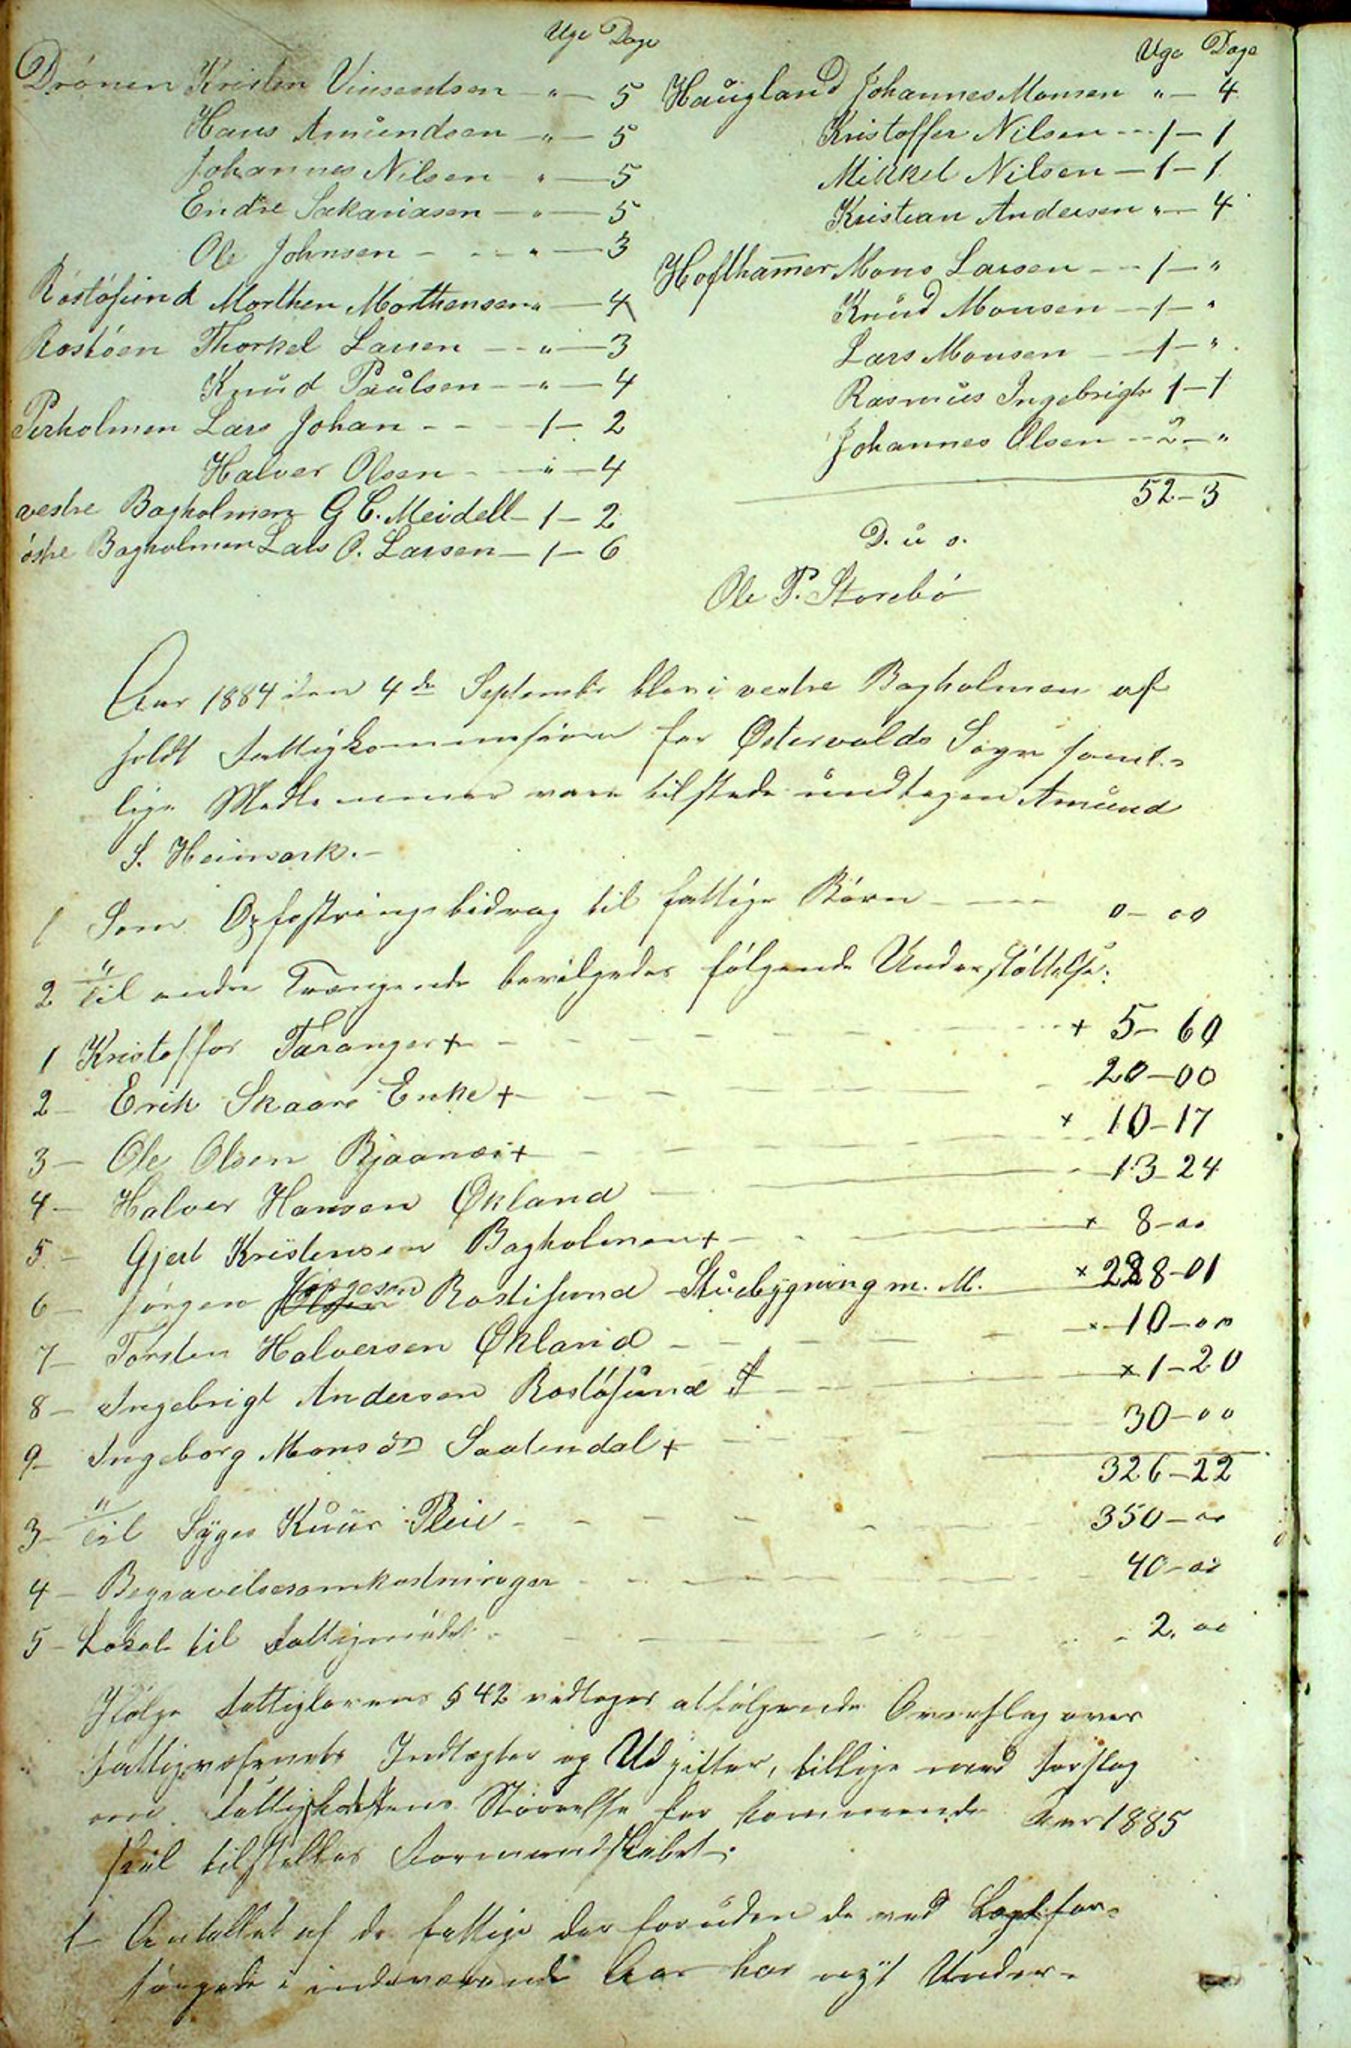 Uge Dage
Drönen Kristen Vinsentsen - " - 5
Hans Amundsen - " - 5
Johannes Nilsen " - 5
Endre Sakariasen - " - 5
Ole Johnsen - - - " - 3
Rostösund Morthen Morthensen " - 4
Rostöen Thorkel Larsen - - " - 3
Knud Paulsen - " - 4
Perholmen Lars Johan - - - 1 - 2
Halver Olsen - - " - 4
vestre Bagholmen G C. Meidell - 1 - 2
östre Bagholmen Lars O. Larsen - 1 - 6
Uge Dage
Haugland Johannes Monsen " - 4
Kristoffer Nilsen - - 1 - 1
Mikkel Nilsen - 1 - 1
Kristian Andersen " - 4
Hofthammer Mons Larsen - - 1 - "
Knud Monsen - 1 - "
Lars Monsen - 1 - "
Rasmus Ingebrigts 1 - 1
Johannes Olsen - - 2 - "
52 - 3
D. u. s.
Ole P. Storebö
Aar 1884 den 4de Septembr blev i vestre Bagholmen af
holdt Fattigkommission for Østervolds Sogn samt-
lige Medlemmer vare tilstede undtagen Amund
S. Heimark. -
1 Som Opfostringsbidrag til fattige Börn - - - 0 - 00
2 Til andre Trængende bevilgedes fölgende Understöttelse:
1 Kristoffer Taranger + - - - + 5 - 60
2 - Erik Skaare Enke + - - - 20 - 00
3 - Ole Olsen Bjaanæs + - - - × 10 - 17
4 - Halver Hansen Økland - - - 13 - 24
5 - Gjert Kristensen Bagholmen + - - - × 8 - 00
6 - Jørgen Jörgesen Rostösund Stuebygning m. M. × 228 - 01
7 - Torsten Halversen Økland - - - × 10 - 00
8 - Ingebrigt Andersen Rostösund + - - - × 1 - 20
9 - Ingeborg Mons dr Saatendal + - - - 30 - 00
326 - 22
3 - Til Syges Kuur Pleie - - - 350 - 00
4 - Begravelsesomkostninger - - - 40 - 00
5 - Lokale til Fattigmödet - - - 2. 00
Ifölge Fattiglovens § 42 vedtoges at fölgende Overslag over
Fattigvæsenets Indtægter og Udgifter, tillige med Forslag
om Fattigskattens Störrelse for kommende Aar 1885
skul tilstilles Formandskabet.
1 - Antallet af de fattige der foruden de ved Lægd for-
sörgede i indeværende Aar har nyt Under-